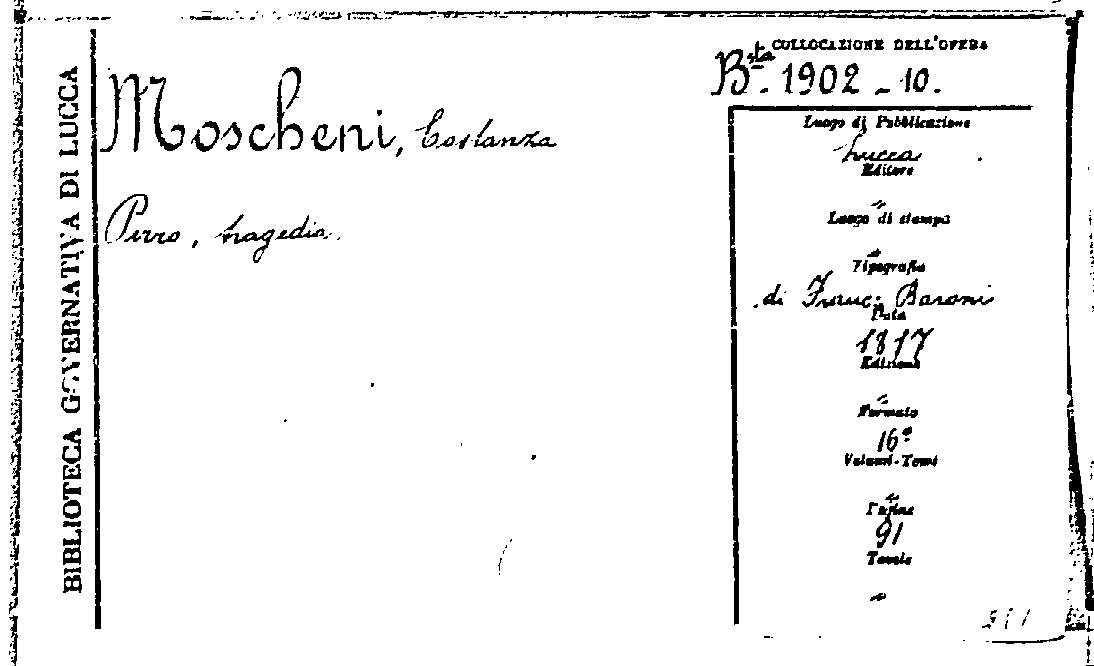 BIBLIOTECA GOVERNATIVA DI LUCCA
Moscheni, Costanza
Pirro, tragedia.
COLLOCAZIONE DELL'OPERA
Bsta. 1902 - 10.
Luogo di Pubblicazione
Lucca
Editore
"
Luogo di stampa
"
Tipografia
di Franc: Baroni
Data
1817
Edizione
"
Formato
16°
Volumi-Tomi
"
Pagine
91
Tavole
"